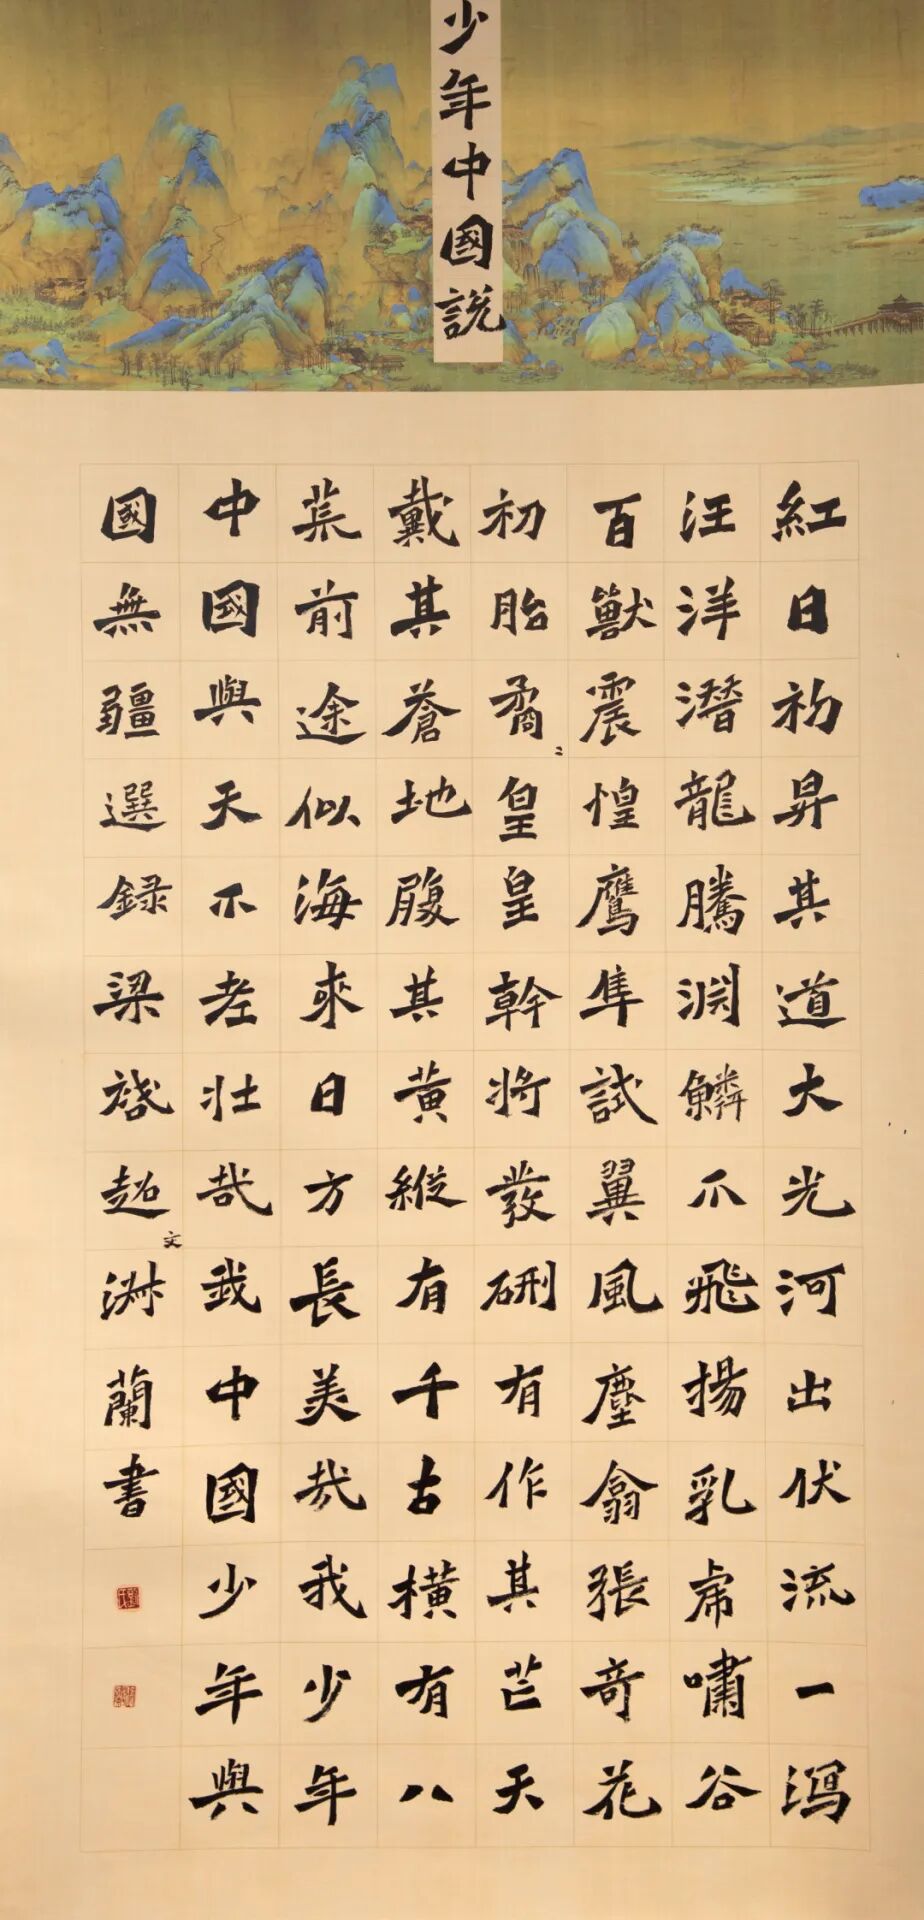 少年中國説
紅日初昇其道大光河出伏流一瀉
汪洋潛龍騰淵鱗爪飛揚乳虎嘯谷
百獸震惶鷹隼試翼風塵翕張奇花
初胎矞〻皇皇幹將發硎有作其芒天
戴其蒼地履其黃縱有千古橫有八
荒前途似海來日方長美哉我少年
中國與天不老壯哉我中國少年與
國無疆選録梁啟超文淑蘭書